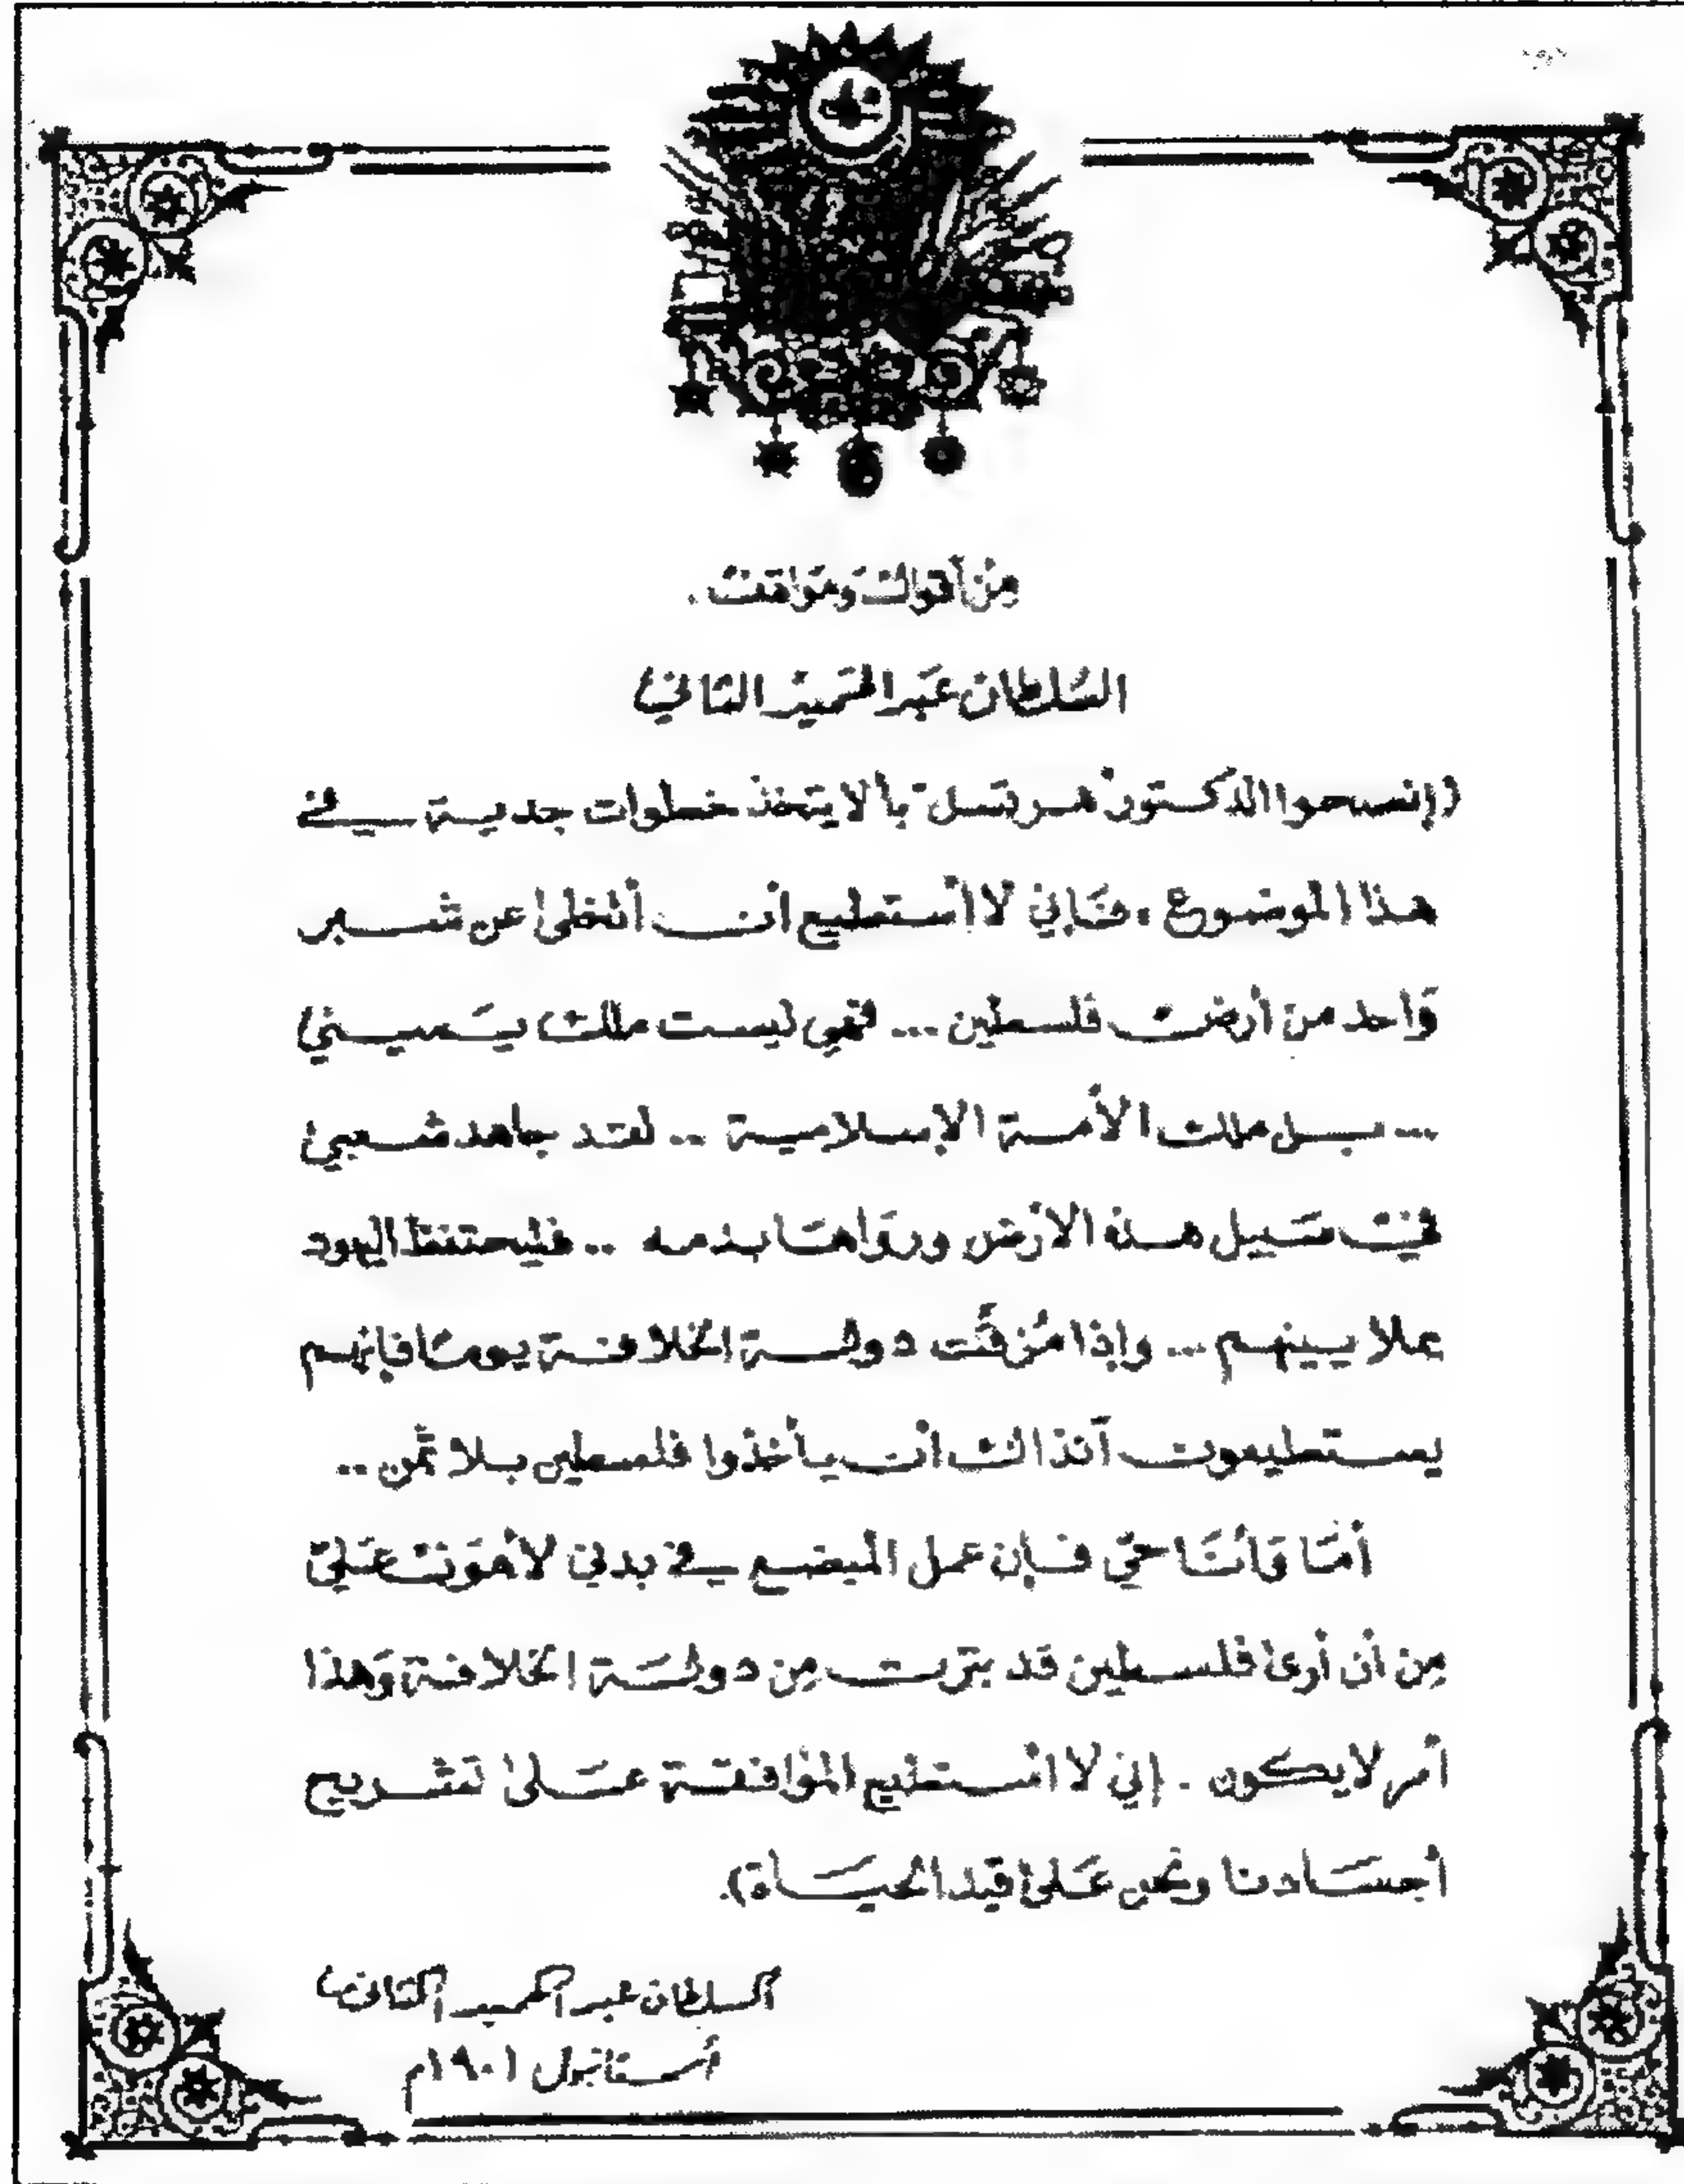 من أقوال ومواقف
السلطان عبد الحميد الثاني
(إنصحوا الدكتور هرتسل بألا يتخذ خطوات جدية في
هذا الموضوع ، فإني لا أستطيع أن أتخلى عن شبر
واحد من أرض فلسطين ... فهي ليست ملك يميني
... بل ملك الأمة الإسلامية .. لقد جاهد شعبي
في سبيل هذه الأرض ورواها بدمه .. فليحتفظ اليهود
بملايينهم ... وإذا مُزقت دولة الخلافة يومًا فإنهم
يستطيعون آنذاك أن يأخذوا فلسطين بلا ثمن ..
أما وأنا حيّ فإن عمل المبضع في بدني لأهون عليّ
من أن أرى فلسطين قد بترت من دولة الخلافة وهذا
أمر لا يكون . إني لا أستطيع الموافقة على تشريح
أجسادنا ونحن على قيد الحياة).
السلطان عبد الحميد الثاني
أستانبول ١٩٠١م